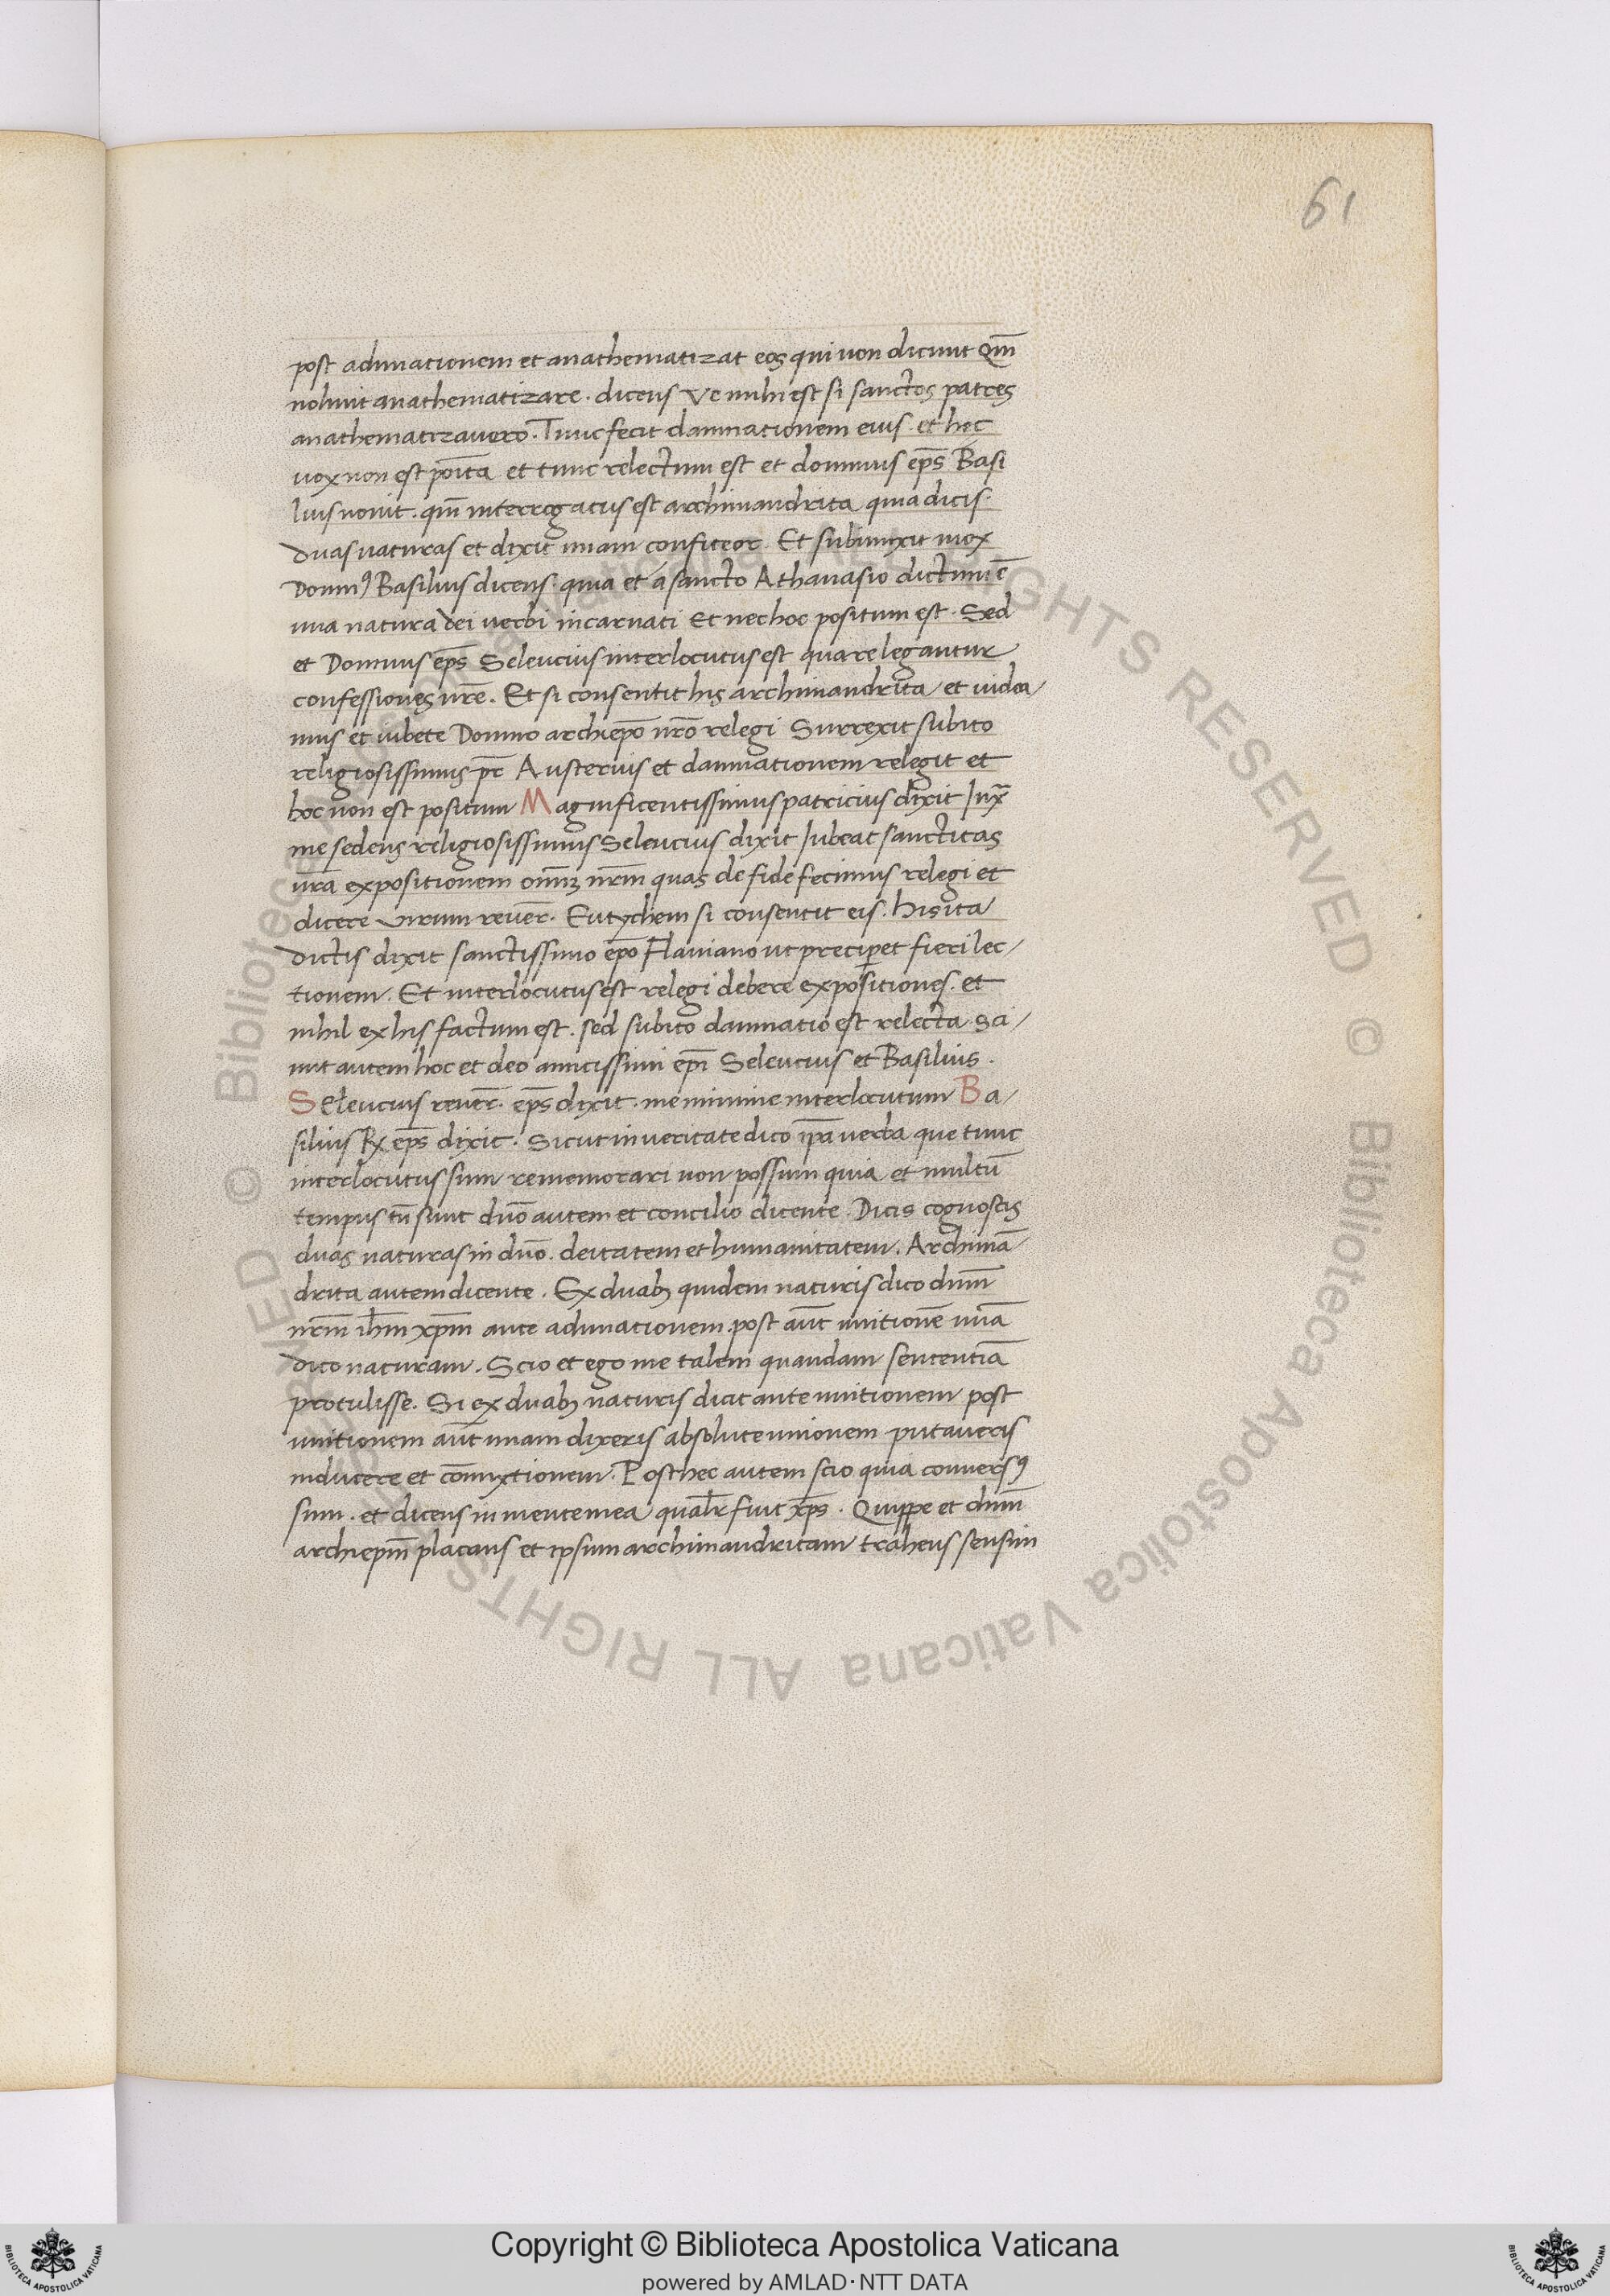 61
post adunationem et anathematizat eos qui non dicunt Qm̄
noluit anathematizare. dicens Ve mihi est si sanctos patres
anathematizavero. Tunc fecit damnationem eius. et hec
vox non est poīta et tunc relectum est et domnus ep̄s Basi
lius novit. qm̄ interrogatus est archimandrita quia dicis.
duas naturas et dixit unam confiteor. Et subiunxit mox
Domnꝰ Basilius dicens. quia et a sancto Athanasio dictum ē
una natura dei verbi incarnati Et nec hoc positum est. Sed
et Domnus ep̄s Seleucius interlocutus est qua relegantur
confessiones nr̄e. Et si consentit his archimandrita et videa/
mus et iubete Domno archiep̄o nr̄o relegi Surrexit subito
religiosissimus pr̄ Austerius et damnationem relegit et
hoc non est positum Magnificentissimus patricius dixit Iux̄
me sedens religiosissimus Seleucius dixit Iubeat sanctitas
vr̄a expositionem omīuꝫ nr̄m quas de fide fecimus relegi et
dicere virum rever̄. Eutychem si consentit eis. His ita
dictis dixit sanctissimo ep̄o Flaviano ut preciperet fieri lec/
tionem. Et interlocutus est relegi debere expositiones. et
nihil ex his factum est. sed subito damnatio est relecta. Sci/
unt autem hoc et deo amicissimi ep̄i Seleucius et Basilius.
Seleucius rever̄. ep̄s dixit. me minime interlocutum Ba/
silius R̄x ep̄s dixit. Sicut in veritate dico ip̄a verba que tunc
interlocutus sum rememorari non possum quia et multū
tempus tn̄ sunt duo autem et concilio dicente. Dicis cognoscis
duas naturas in duo. deitatem et humanitatem. Archimā
drita autem dicente. Ex duabꝫ quidem naturis dico dnm̄
nr̄m ih̄m xp̄m ante adunationem. post aūt unitionē unā
dico naturam. Scio et ego me talem quandam sententiā
protulisse. Si ex duabꝫ naturis dicit ante unitionem post
unitionem aūt unam dixeris absolute unionem putaveris
inducere et com̄ixtionem. Post hec autem scio quia conversꝰ
sum. et dicens in mente mea qualr̄ fiut xp̄s. Quippe et dnm̄
archiepm̄ placans et ipsum archimandritam trahens sensim
© Biblioteca Apostolica Vaticana ALL RIGHTS RESERVED
Copyright © Biblioteca Apostolica Vaticana
powered by AMLAD·NTT DATA